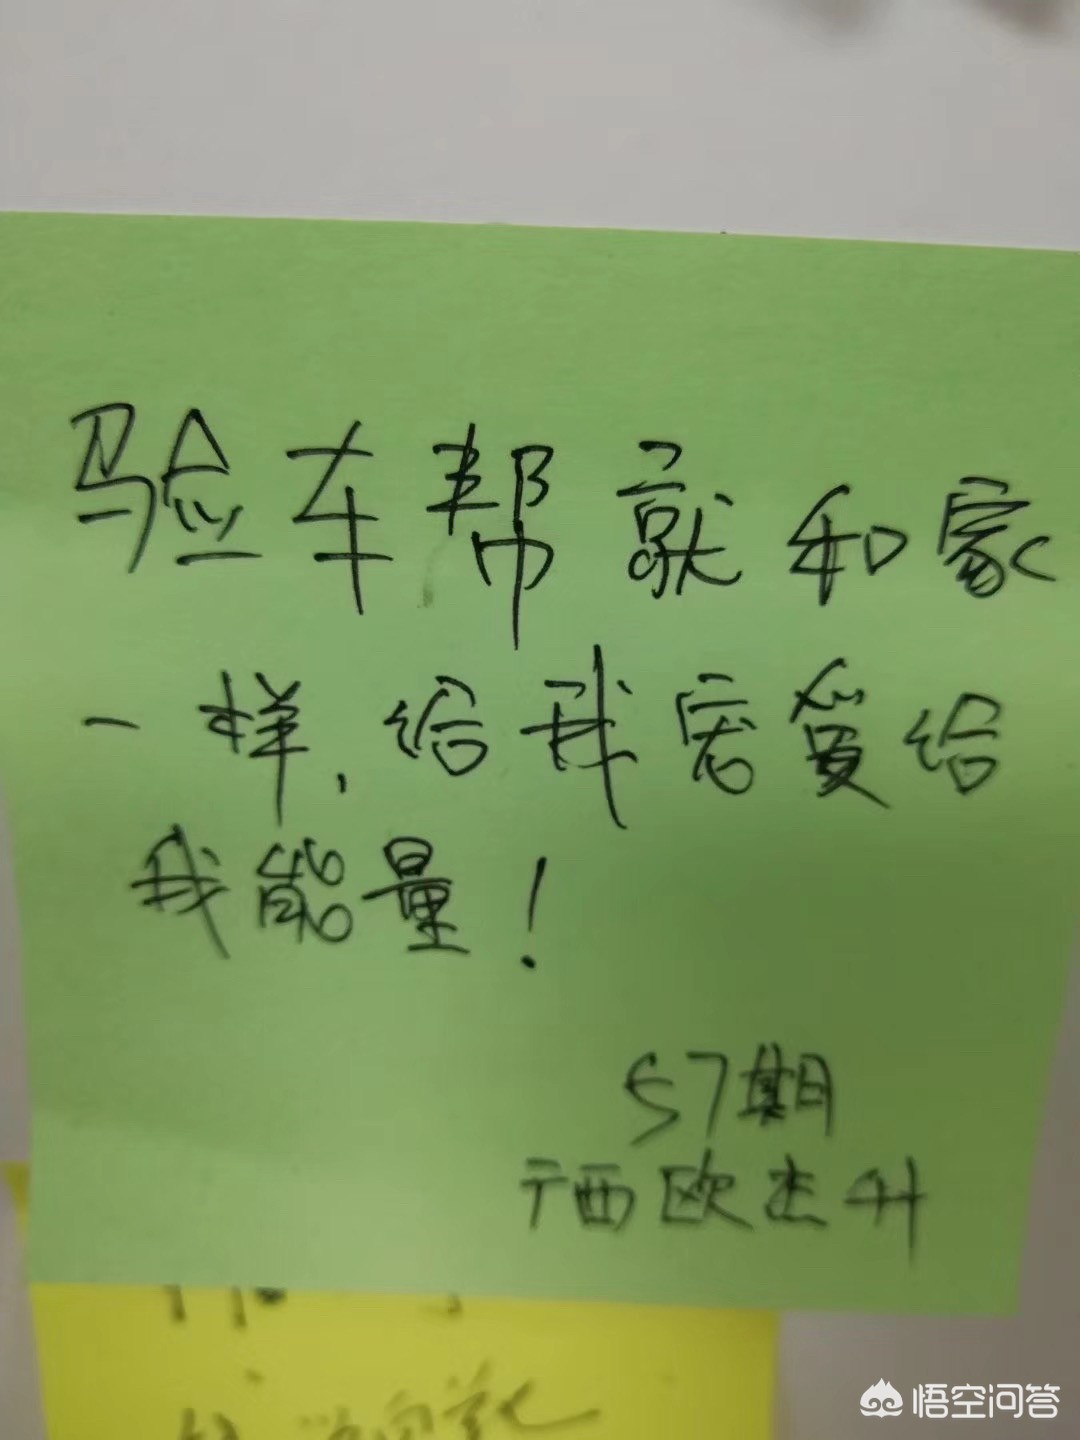 验车帮就和家
一样,给我宠爱给
我能量!
57期
广西欧杰升
悟空问答